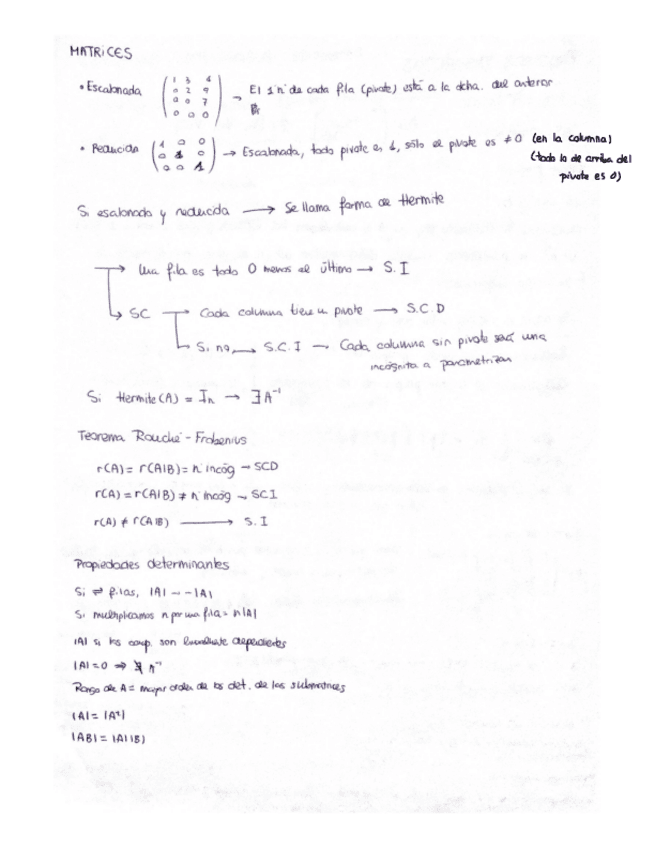 MATRICES
• Escalonada (1 3 4 / 0 2 9 / 0 0 7 / 0 0 0) → El 1 nº de cada fila (pivote) está a la dcha. del anterior
• Reducida (1 0 0 / 0 1 0 / 0 0 1) → Escalonada, todo pivote es 1, sólo el pivote es ≠ 0 (en la columna)
(todo lo de arriba del
pivote es 0)
Si escalonada y reducida → Se llama forma de Hermite
→ Una fila es todo 0 menos el último → S.I
↳ SC → Cada columna tiene un pivote → S.C.D
↳ Si no, → S.C.I → Cada columna sin pivote será una
incógnita a parametrizar
Si Hermite(A) = In → ∃A⁻¹
Teorema Rouché - Frobenius
r(A) = r(A|B) = nº incóg → SCD
r(A) = r(A|B) ≠ nº incóg → SCI
r(A) ≠ r(A|B) → S.I
Propiedades determinantes
Si ⇌ filas, |A| → -|A|
Si multiplicamos n por una fila = n|A|
|A| si los comp. son linealmente dependientes
|A| = 0 ⇒ ∄ A⁻¹
Rango de A = mayor orden de los det. de las submatrices
|A| = |Aᵗ|
|AB| = |A||B|